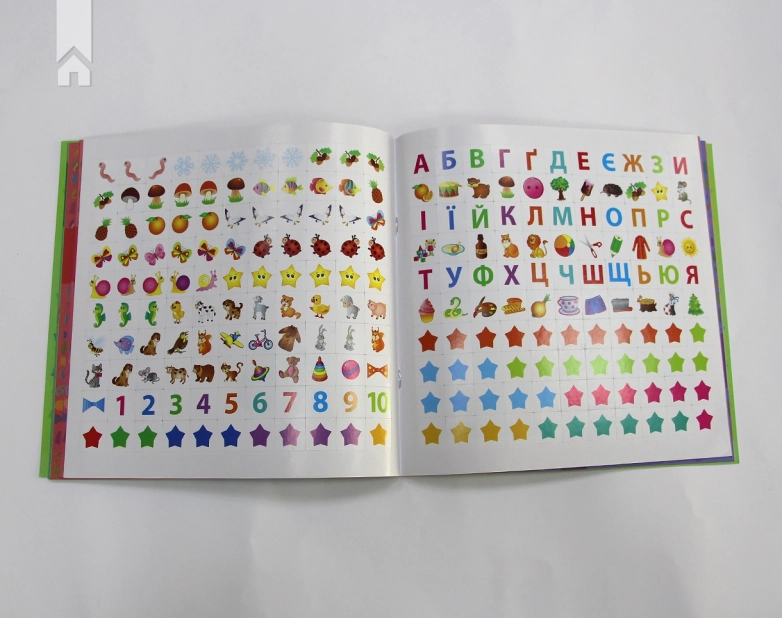 1 2 3 4 5 6 7 8 9 10
А Б В Г Ґ Д Е Є Ж З И
І Ї Й К Л М Н О П Р С
Т У Ф Х Ц Ч Ш Щ Ь Ю Я